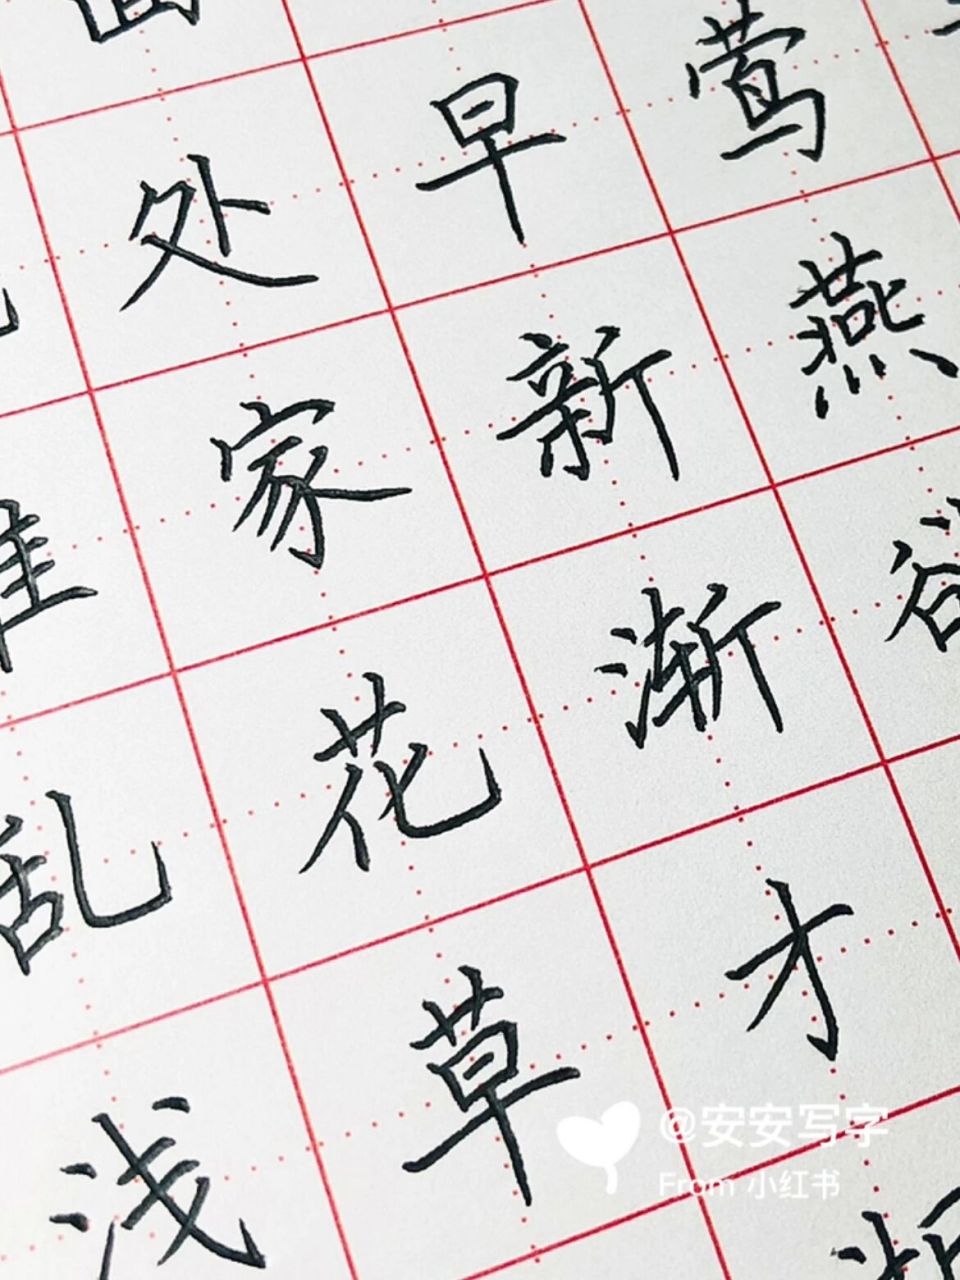 处早莺
家新燕
乱花渐
浅草才
@安安写字
From 小红书